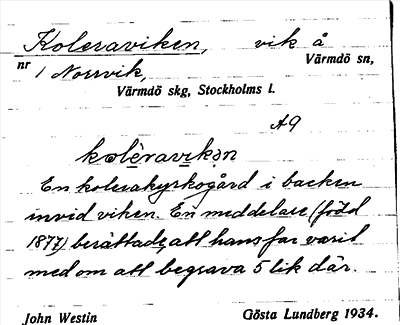 Koleraviken, vik å
Värmdö sn,
nr 1 Norrvik,
Värmdö skg, Stockholms l.
A9
kolèravikən
En kolerakyrkogård i backen
invid viken. En meddelare (född
1877) berättade, att hans far varit
med om att begrava 5 lik där.
John Westin Gösta Lundberg 1934.